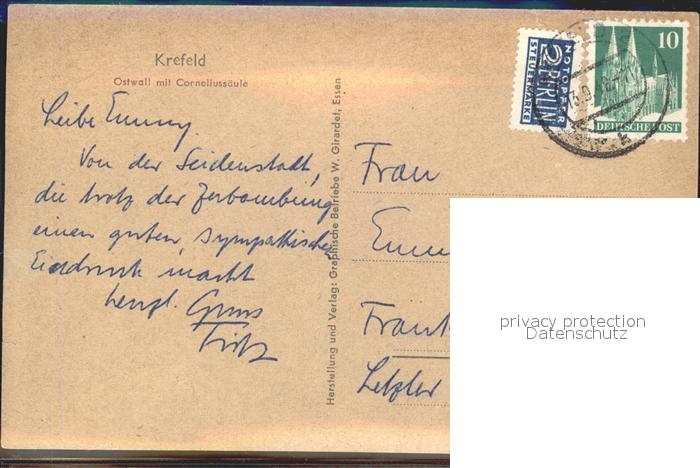 Krefeld
Ostwall mit Corneliussäule
Liebe Emmy.
Von der Seidenstadt,
die trotz der Zerbombung
einen guten, sympathischen
Eindruck macht
herzl. Gruss
Fritz
Herstellung und Verlag: Graphische Betriebe W. Girardet, Essen
NOTOPFER
2 BERLIN
STEUERMARKE
10
DEUTSCHE POST
Frau
Emm
Frankf
Letzter
privacy protection
Datenschutz